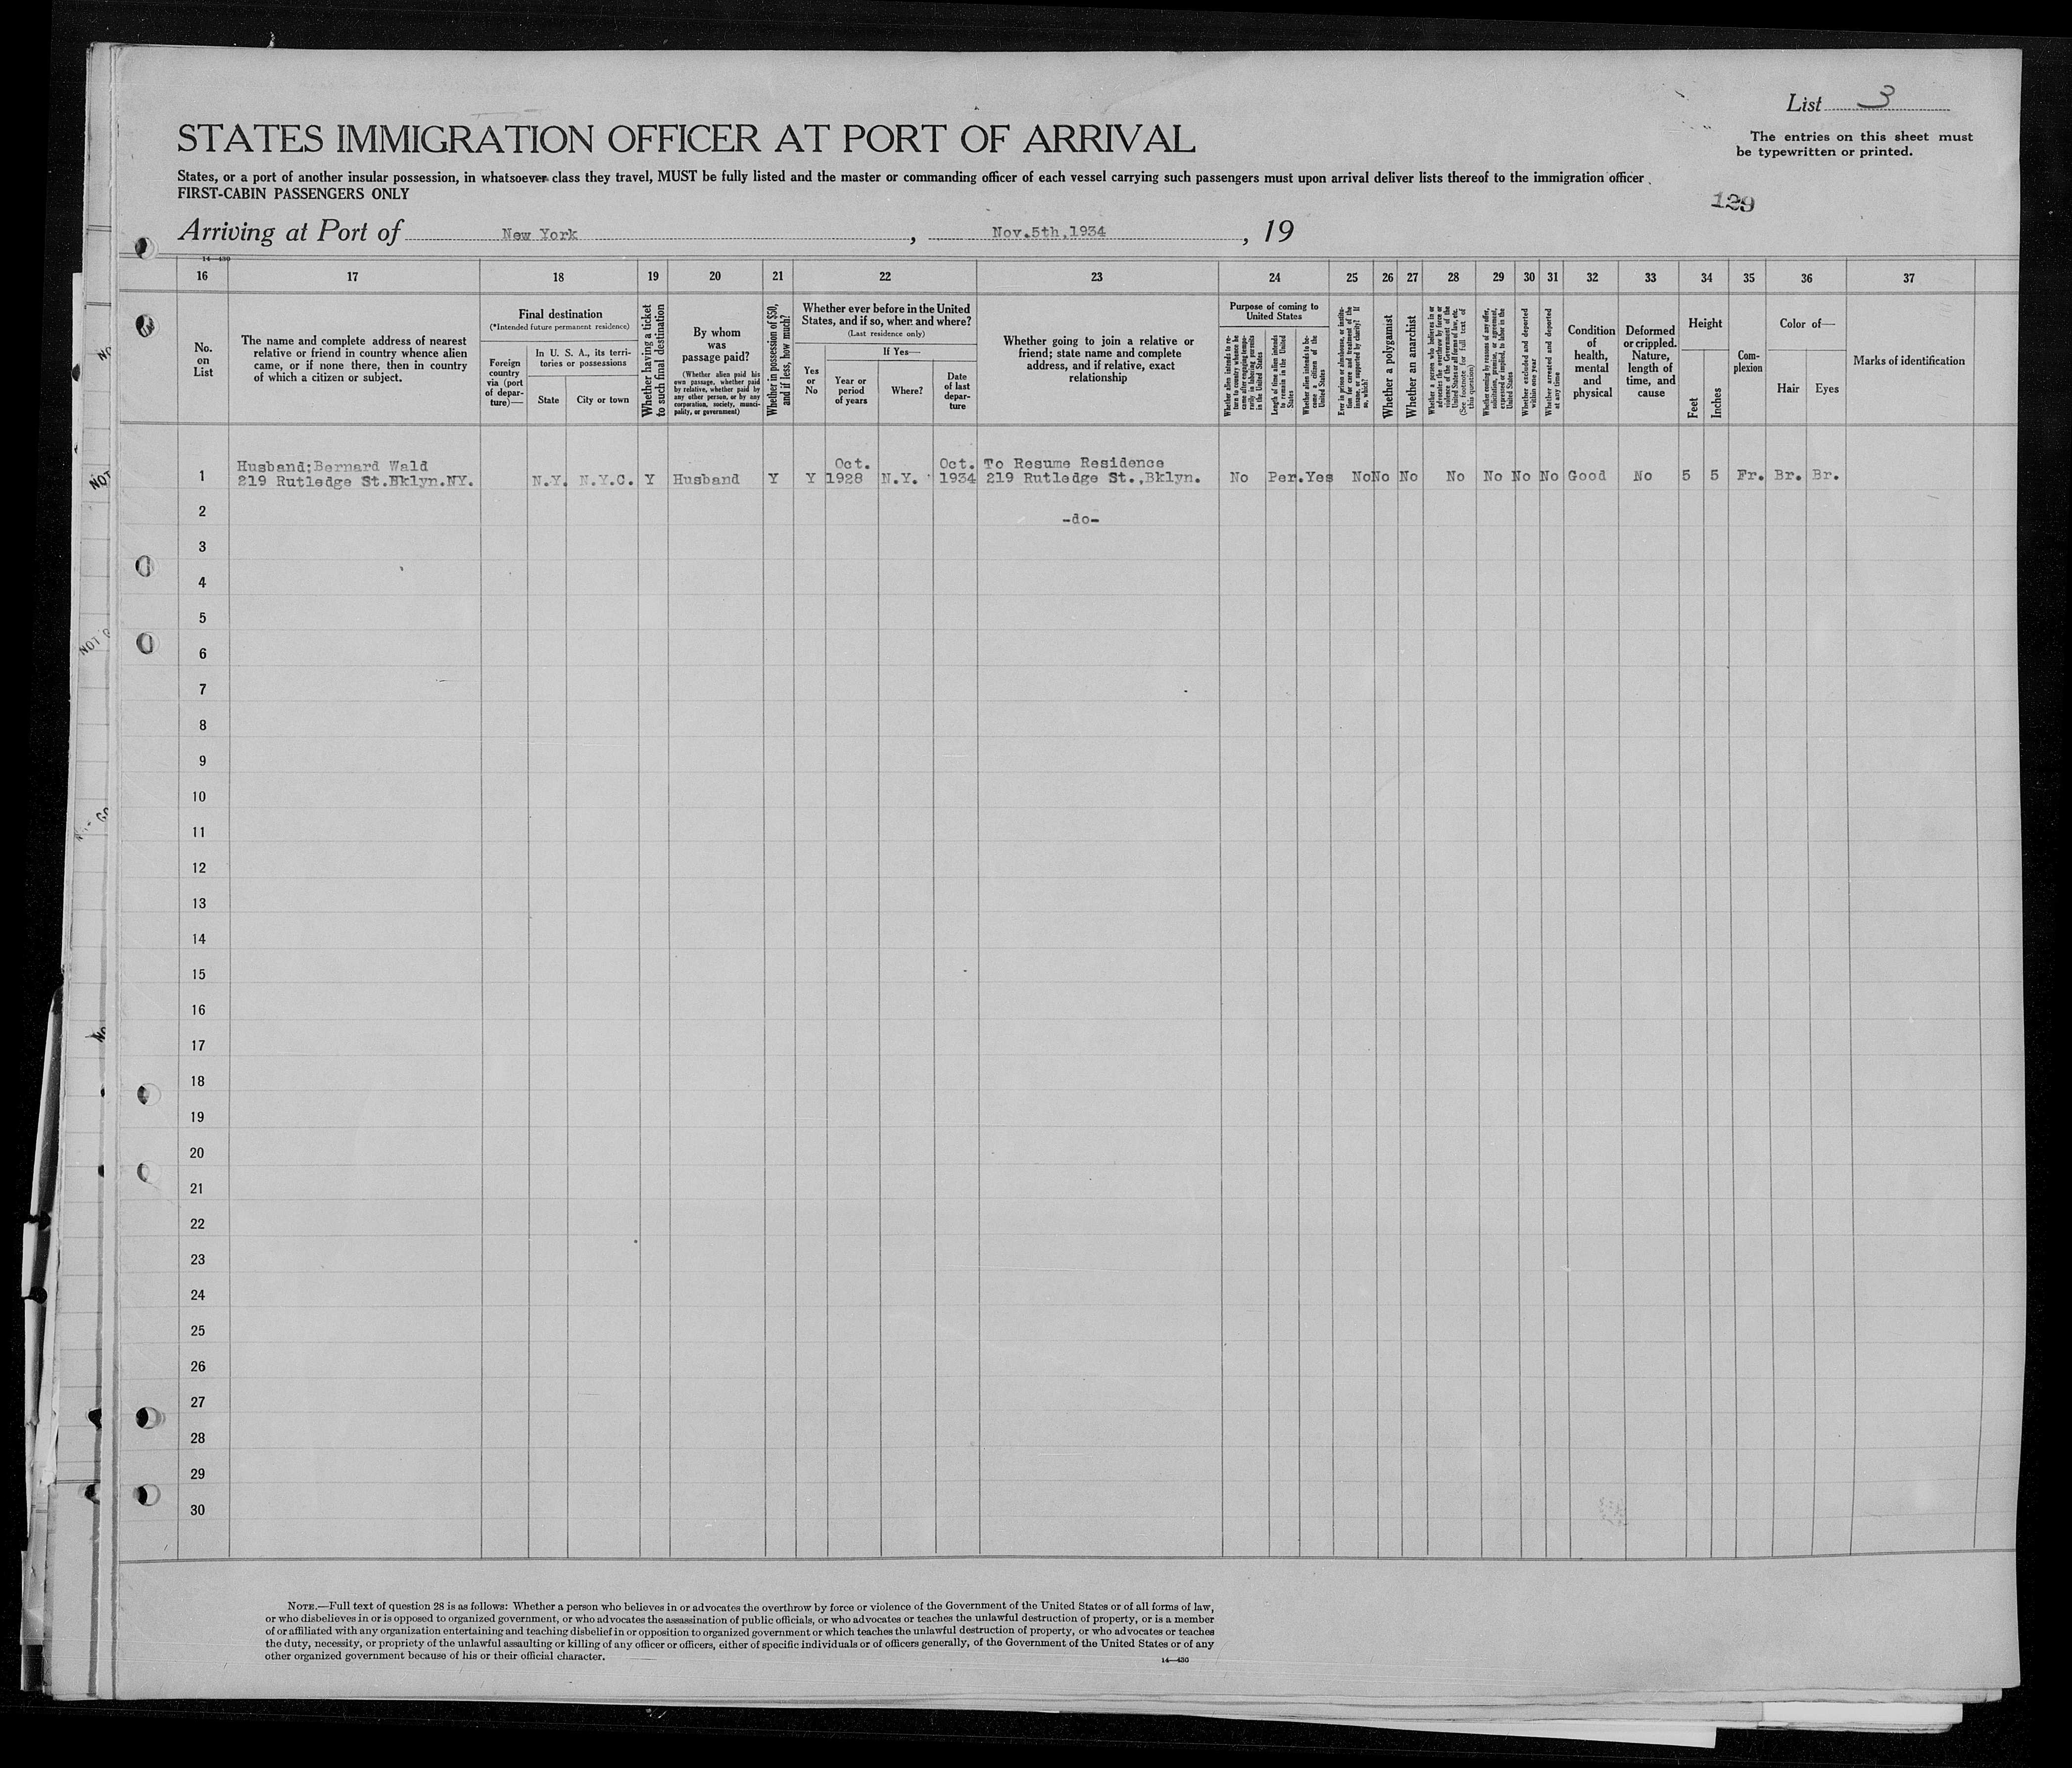 List 3
STATES IMMIGRATION OFFICER AT PORT OF ARRIVAL
The entries on this sheet must
be typewritten or printed.
States, or a port of another insular possession, in whatsoever class they travel, MUST be fully listed and the master or commanding officer of each vessel carrying such passengers must upon arrival deliver lists thereof to the immigration officer
FIRST-CABIN PASSENGERS ONLY
129
Arriving at Port of New York, Nov.5th,1934, 19
14—430
16 17 18 19 20 21 22 23 24 25 26 27 28 29 30 31 32 33 34 35 36 37
No.
on
List
The name and complete address of nearest
relative or friend in country whence alien
came, or if none there, then in country
of which a citizen or subject.
Final destination
(*Intended future permanent residence)
Foreign
country
via (port
of depar-
ture)—
In U. S. A., its terri-
tories or possessions
State
City or town
Whether having a ticket
to such final destination
By whom
was
passage paid?
(Whether alien paid his
own passage, whether paid
by relative, whether paid by
any other person, or by any
corporation, society, munici-
pality, or government)
Whether in possession of $50,
and if less, how much?
Whether ever before in the United
States, and if so, when and where?
(Last residence only)
Yes
or
No
If Yes—
Year or
period
of years
Where?
Date
of last
depar-
ture
Whether going to join a relative or
friend; state name and complete
address, and if relative, exact
relationship
Purpose of coming to
United States
Whether alien intends to re-
turn to country whence he
came after engaging tempo-
rarily in laboring pursuits
in the United States
Length of time alien intends
to remain in the United
States
Whether alien intends to be-
come a citizen of the
United States
Ever in prison or almshouse, or institu-
tion for care and treatment of the
insane, or supported by charity? If
so, which?
Whether a polygamist
Whether an anarchist
Whether a person who believes in or
advocates the overthrow by force or
violence of the Government of the
United States or all forms of law, etc.
(See footnote for full text of
this question)
Whether coming by reason of any offer,
solicitation, promise, or agreement,
expressed or implied, to labor in the
United States
Whether excluded and deported
within one year
Whether arrested and deported
at any time
Condition
of
health,
mental
and
physical
Deformed
or crippled.
Nature,
length of
time, and
cause
Height
Feet
Inches
Com-
plexion
Color of—
Hair
Eyes
Marks of identification
Husband:Bernard Wald Oct. Oct. To Resume Residence
1 219 Rutledge St.Bklyn.NY. N.Y. N.Y.C. Y Husband Y Y 1928 N.Y. 1934 219 Rutledge St.,Bklyn. No Per. Yes No No No No No No No Good No 5 5 Fr. Br. Br.
2 -do-
3
4
5
6
7
8
9
10
11
12
13
14
15
16
17
18
19
20
21
22
23
24
25
26
27
28
29
30
NOTE.—Full text of question 28 is as follows: Whether a person who believes in or advocates the overthrow by force or violence of the Government of the United States or of all forms of law,
or who disbelieves in or is opposed to organized government, or who advocates the assassination of public officials, or who advocates or teaches the unlawful destruction of property, or is a member
of or affiliated with any organization entertaining and teaching disbelief in or opposition to organized government or which teaches the unlawful destruction of property, or who advocates or teaches
the duty, necessity, or propriety of the unlawful assaulting or killing of any officer or officers, either of specific individuals or of officers generally, of the Government of the United States or of any
other organized government because of his or their official character.
14—430